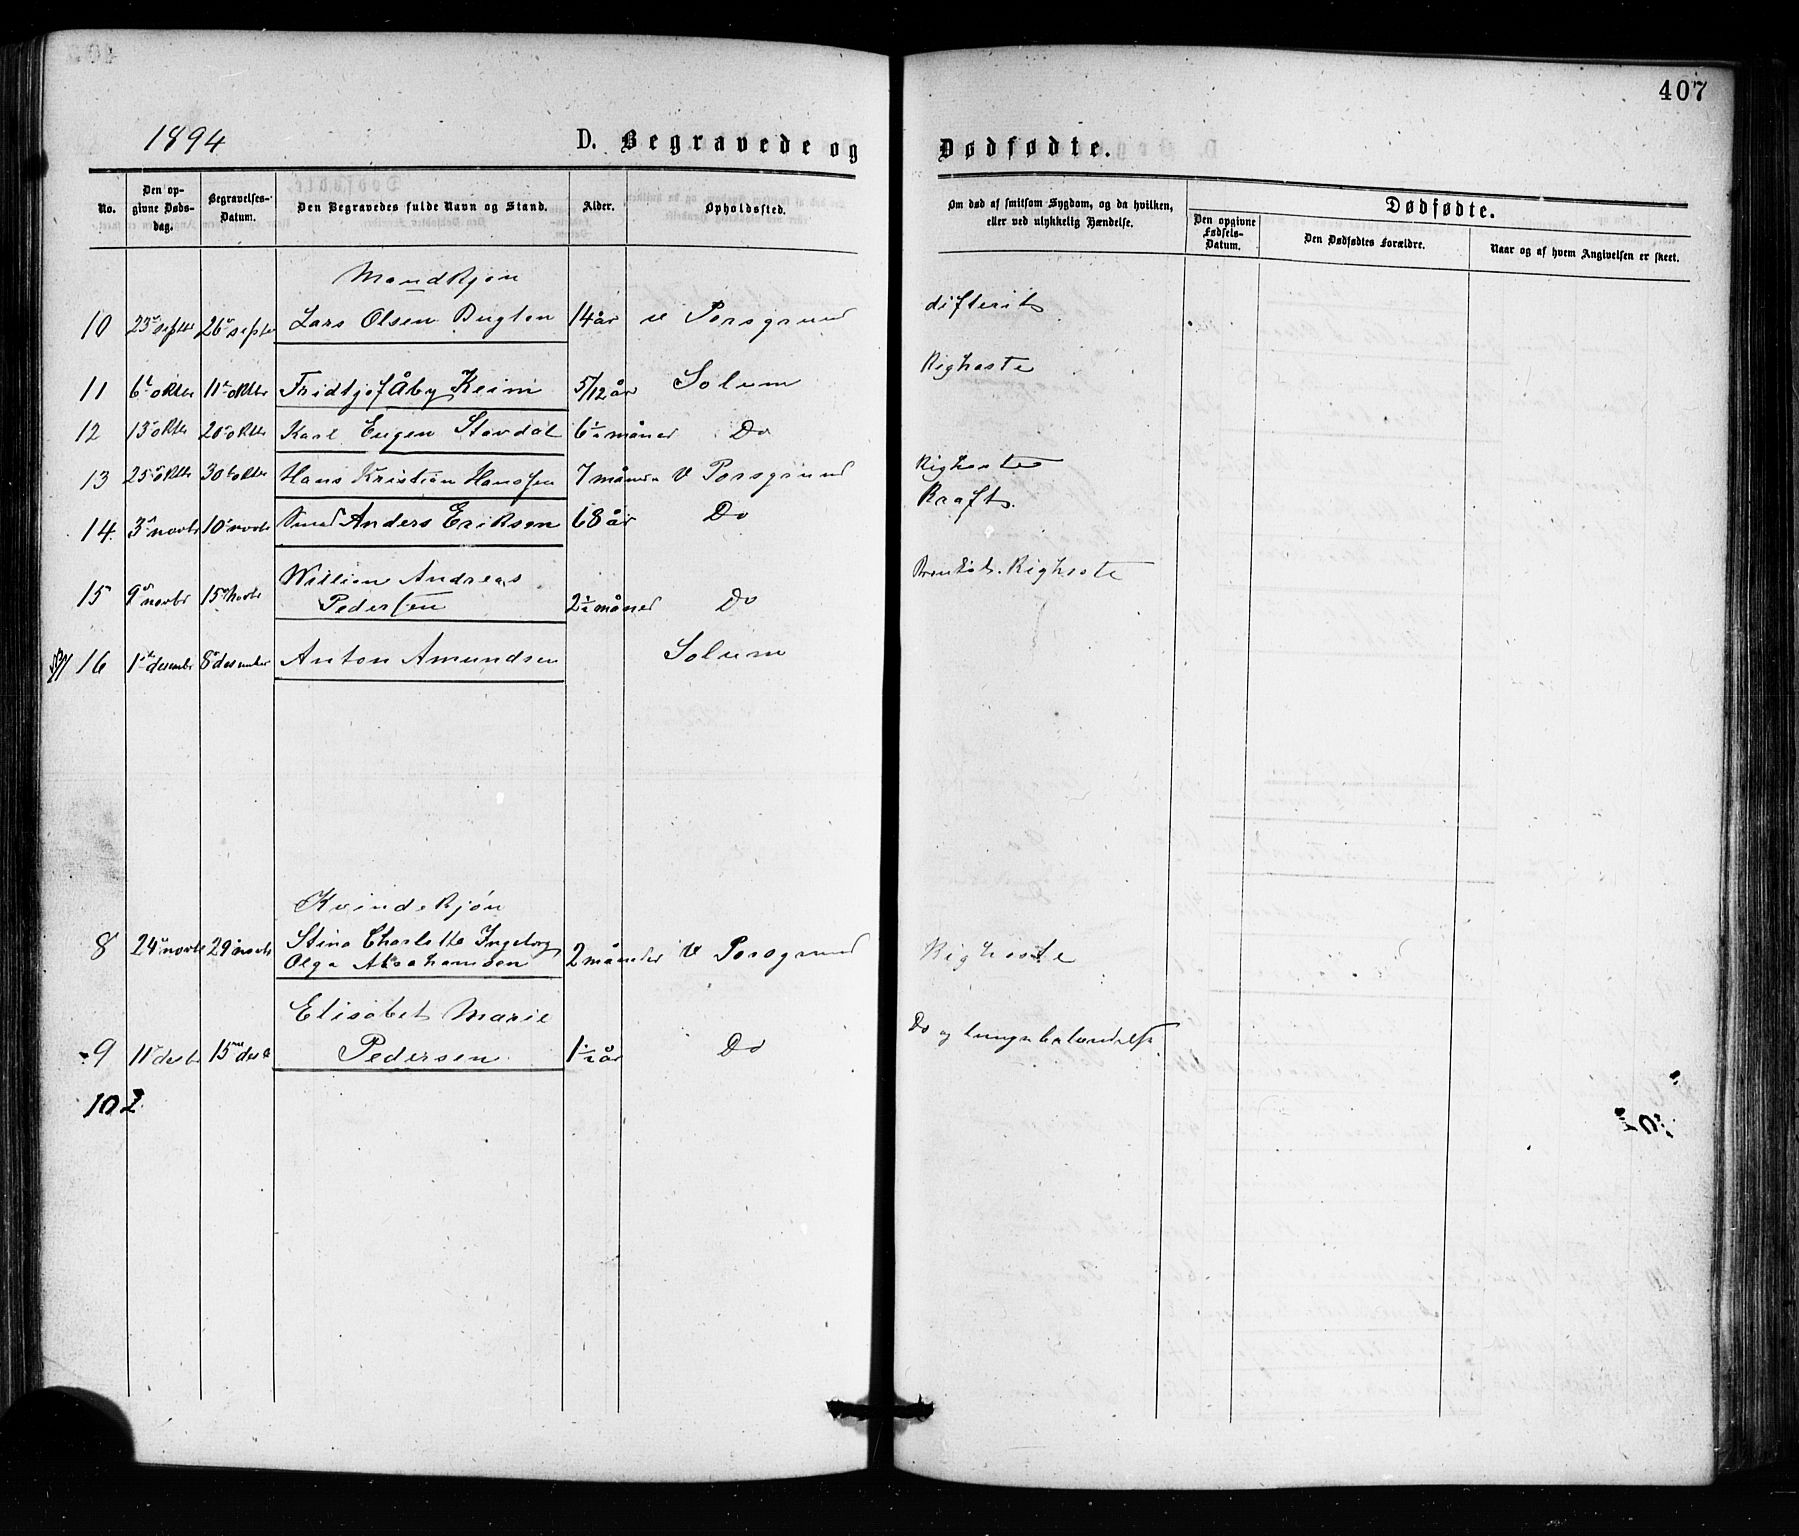 407
1894
D. Begravede og Dødfødte.
No.
Den opgivne Dødsdag.
Begravelses-Datum.
Den Begravedes fulde Navn og Stand.
Alder.
Opholdssted.
Om død af smitsom Sygdom, og da hvilken, eller ved ulykkelig Hændelse.
Dødfødte.
Den opgivne Fødsels-Datum.
Den Dødfødtes Forældre.
Naar og af hvem Angivelsen er skeet.
Mandkjøn
10 23 septbr 26 septbr Lars Olsen 14 år V Porsgrund difterit
11 6 oktbr 11 oktbr Fridtjof Åby Keim 5/12 år Solum Kighoste
12 13 oktbr 20 oktbr Karl Eugen Stavdal 6½ måned Do
13 25 oktbr 30 oktbr Hans Kristian Hanssen 7 måneder V Porsgrund Kighoste
14. 3 novbr 10 novbr Smed Anders Eriksen 68 år Do Kræft.
15 9 novbr 15 novbr William Andreas
Pedersen 2½ måned Do Bronkit. Kighoste
16 1 desembr 8 desember Anton Amundsen Solum
Kvindekjøn
8 24 novbr 29 novbr Stina Charlotte Ingeborg
Olga Abrahamsen 2 måneder V Porsgrund Kighoste
Elisabet Marie
9 11 desbr 15 desb Pedersen 1½ år Do Do og lungebetændelse
10